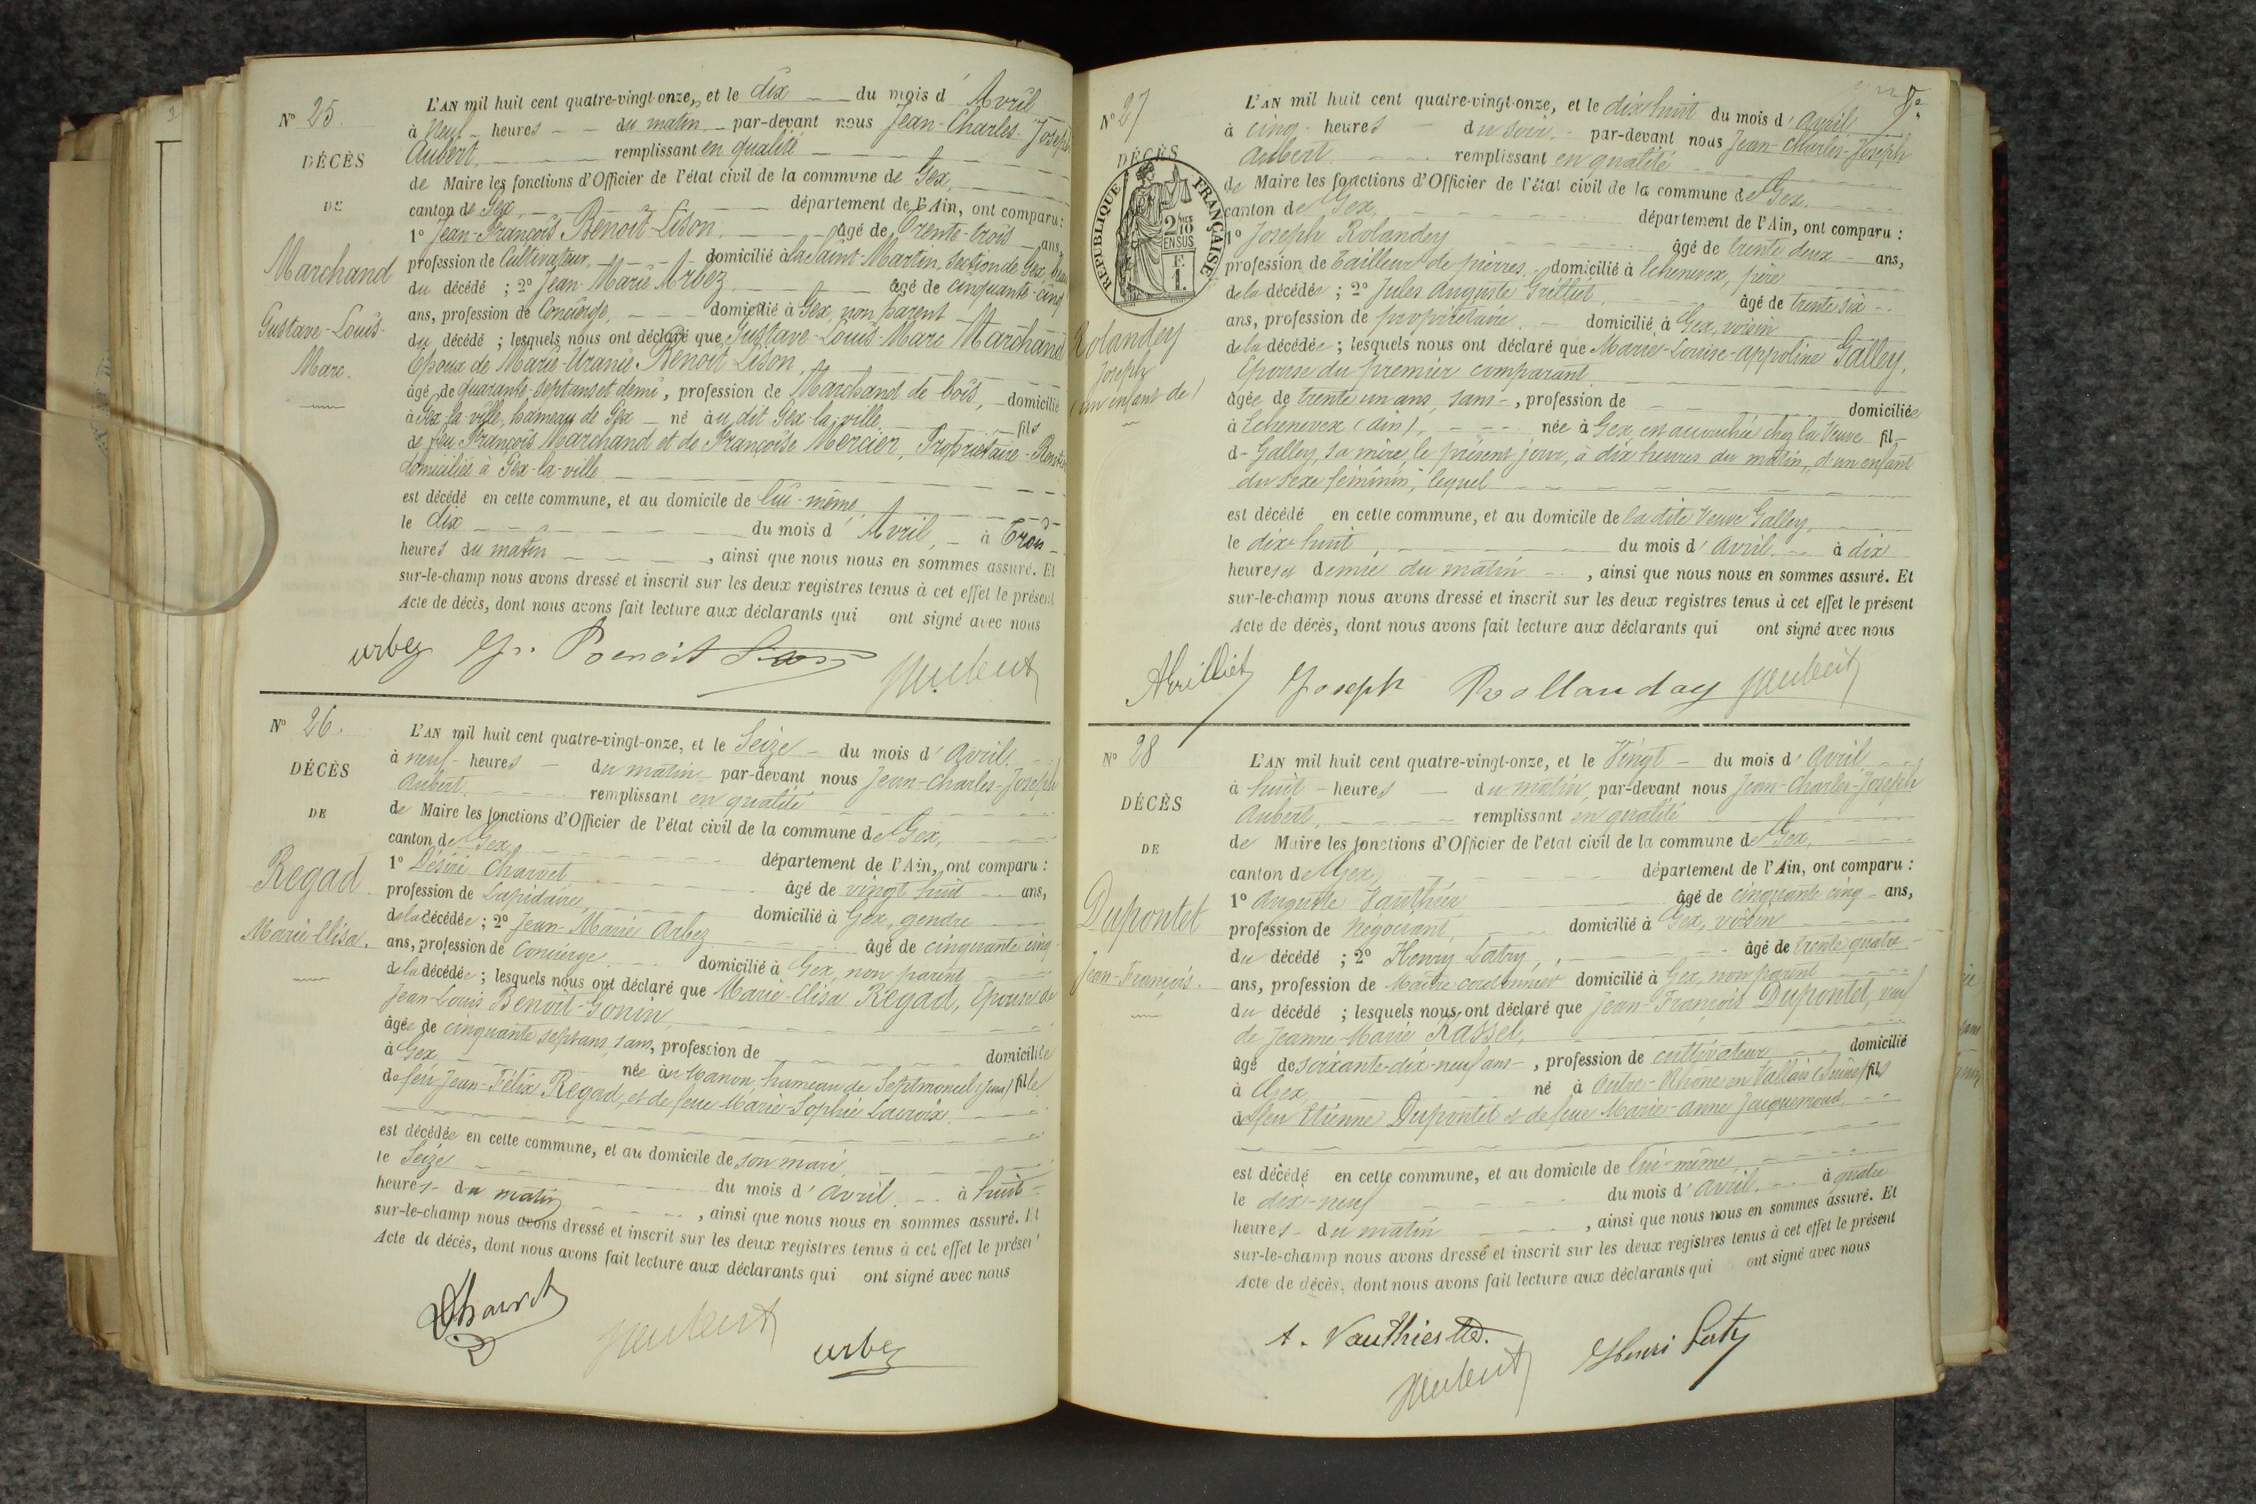 N° 25.
DÉCÈS
DE
Marchand
Gustave-Louis-
Marc.
L'AN mil huit cent quatre-vingt-onze, et le dix du mois d'Avril
à Neuf heures du matin par-devant nous Jean-Charles-Joseph
Aubert remplissant en qualité
de Maire les fonctions d'Officier de l'état civil de la commune de Gex,
canton de Gex, département de l'Ain, ont comparu :
1° Jean-François Benoit-Lison âgé de Trente-trois ans,
profession de Cultivateur, domicilié à la Saint-Martin, section de Gex,
du décédé ; 2° Jean Marie Arbez âgé de cinquante-cinq
ans, profession de Concierge, domicilié à Gex, non parent
du décédé ; lesquels nous ont déclaré que Gustave-Louis-Marc Marchand
Epoux de Marie-Uranie Benoit Lison,
âgé de quarante-sept ans et demi, profession de Marchand de bois, domicilié
à Gex-la-ville, hameau de Gex né au dit Gex-la-ville fils
de feu François Marchand et de Françoise Mercier, Propriétaire-Rentière
domiciliés à Gex-la-ville
est décédé en cette commune, et au domicile de lui-même
le dix du mois d'Avril, à Trois
heures du matin, ainsi que nous nous en sommes assuré. Et
sur-le-champ nous avons dressé et inscrit sur les deux registres tenus à cet effet le présent
Acte de décès, dont nous avons fait lecture aux déclarants qui ont signé avec nous
arbez Jn. Benoit Lison
JAubert
N° 26.
DÉCÈS
DE
Regad
Marie-Elisa.
L'AN mil huit cent quatre-vingt-onze, et le Seize du mois d'Avril
à neuf heures du matin par-devant nous Jean-Charles-Joseph
Aubert remplissant en qualité
de Maire les fonctions d'Officier de l'état civil de la commune de Gex,
canton de Gex, département de l'Ain, ont comparu :
1° Désiré Charvet âgé de vingt huit ans,
profession de Lapidaire, domicilié à Gex, gendre
de la décédée ; 2° Jean-Marie Arbez âgé de cinquante cinq
ans, profession de Concierge domicilié à Gex, non parent
de la décédée ; lesquels nous ont déclaré que Marie-Elisa Regad, Epouse de
Jean-Louis Benoit-Gonin,
âgée de cinquante sept ans, sans, profession de domiciliée
à Gex née au Manon, hameau de Septmoncel (Jura) fille
de feu Jean-Félix Regad, et de feue Marie-Sophie Lacroix.
est décédée en cette commune, et au domicile de son mari
le Seize du mois d'avril à huit
heures du matin, ainsi que nous nous en sommes assuré. Et
sur-le-champ nous avons dressé et inscrit sur les deux registres tenus à cet effet le présent
Acte de décès, dont nous avons fait lecture aux déclarants qui ont signé avec nous
DCharvet
JAubert
arbez
N° 27
DÉCÈS
RÉPUBLIQUE FRANÇAISE
2/10 EN SUS
F. 1.
Rolandey
Joseph
(un enfant de)
L'AN mil huit cent quatre-vingt-onze, et le dix huit du mois d'avril
à cinq heures du soir par-devant nous Jean-Charles-Joseph
Aubert remplissant en qualité
de Maire les fonctions d'Officier de l'état civil de la commune de Gex.
canton de Gex, département de l'Ain, ont comparu :
1° Joseph Rolandey âgé de trente deux ans,
profession de Tailleur de pierres domicilié à Echenevex, père
de la décédée ; 2° Jules Auguste Grilliet âgé de trente six
ans, profession de propriétaire domicilié à Gex, voisin
de la décédée ; lesquels nous ont déclaré que Marie-Louise-appoline Galley,
Epouse du premier comparant
âgée de trente un ans, sans, profession de domiciliée
à Echenevex (Ain), née à Gex, en accouchée chez la Veuve fil
d Galley, sa mère, le présent jour, à dix heures du matin, d'un enfant
du sexe féminin, lequel
est décédé en cette commune, et au domicile de la dite Veuve Galley,
le dix huit, du mois d'avril à dix
heures et demie du matin, ainsi que nous nous en sommes assuré. Et
sur-le-champ nous avons dressé et inscrit sur les deux registres tenus à cet effet le présent
Acte de décès, dont nous avons fait lecture aux déclarants qui ont signé avec nous
AGrilliet Joseph Rollanday JAubert
N° 28
DÉCÈS
DE
Dupontet
Jean-François.
L'AN mil huit cent quatre-vingt-onze, et le Vingt du mois d'avril
à huit heures du matin, par-devant nous Jean-Charles-Joseph
Aubert, remplissant en qualité
de Maire les fonctions d'Officier de l'état civil de la commune de Gex,
canton de Gex, département de l'Ain, ont comparu :
1° Auguste Vauthier âgé de cinquante cinq ans,
profession de Négociant, domicilié à Gex, voisin
du décédé ; 2° Henry Latry, âgé de trente quatre
ans, profession de Maître cordonnier domicilié à Gex, non parent
du décédé ; lesquels nous ont déclaré que Jean-François Dupontet, veuf
de Jeanne-Marie Rassel,
âgé de soixante-dix-neuf ans, profession de cultivateur domicilié
à Gex né à Outre-Rhône en Vallais (Suisse) fils
de feu Etienne Dupontet et de feue Marie-anne Jacquemoud
est décédé en cette commune, et au domicile de lui-même
le dix-neuf du mois d'avril à quatre
heures du matin, ainsi que nous nous en sommes assuré. Et
sur-le-champ nous avons dressé et inscrit sur les deux registres tenus à cet effet le présent
Acte de décès, dont nous avons fait lecture aux déclarants qui ont signé avec nous
A. Vauthier
JAubert
Henri Laty